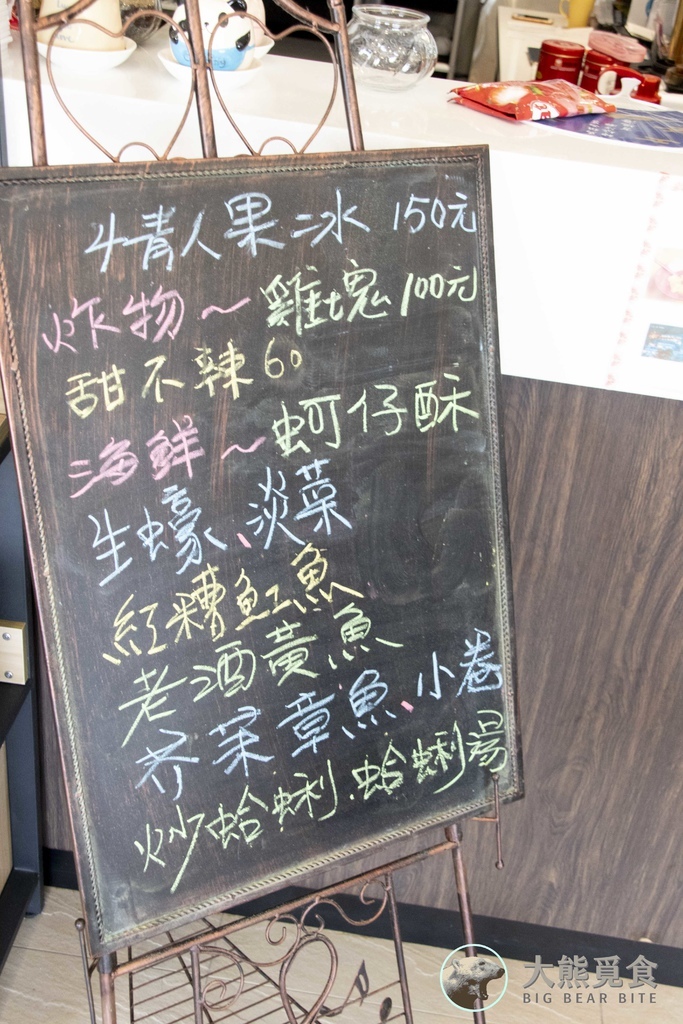 情人果冰 150元
炸物～雞塊100元
甜不辣60
海鮮～蚵仔酥
生蠔、淡菜
紅糟魟魚
老酒黃魚
芥茉章魚、小卷
炒蛤蜊.蛤蜊湯
大熊覓食
BIG BEAR BITE